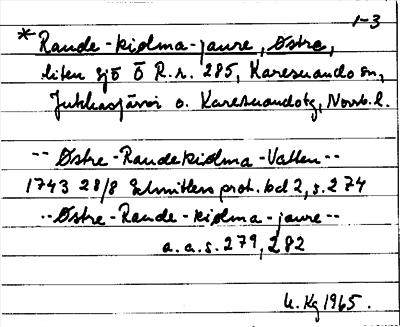 1-3
*Raude-kidma-jaure, Østre,
liten sjö Ö R.r. 285, Karesuando sn,
Jukkasjärvi o. Karesuandotg, Norrb. l.
-- Østre-Raudekidma-Vatten --
1743 28/8 Schnitlers prot. bd 2, s. 274
-- Østre-Raude-kidma-jaure --
a.a.s. 279, 282
K. Kg 1965.